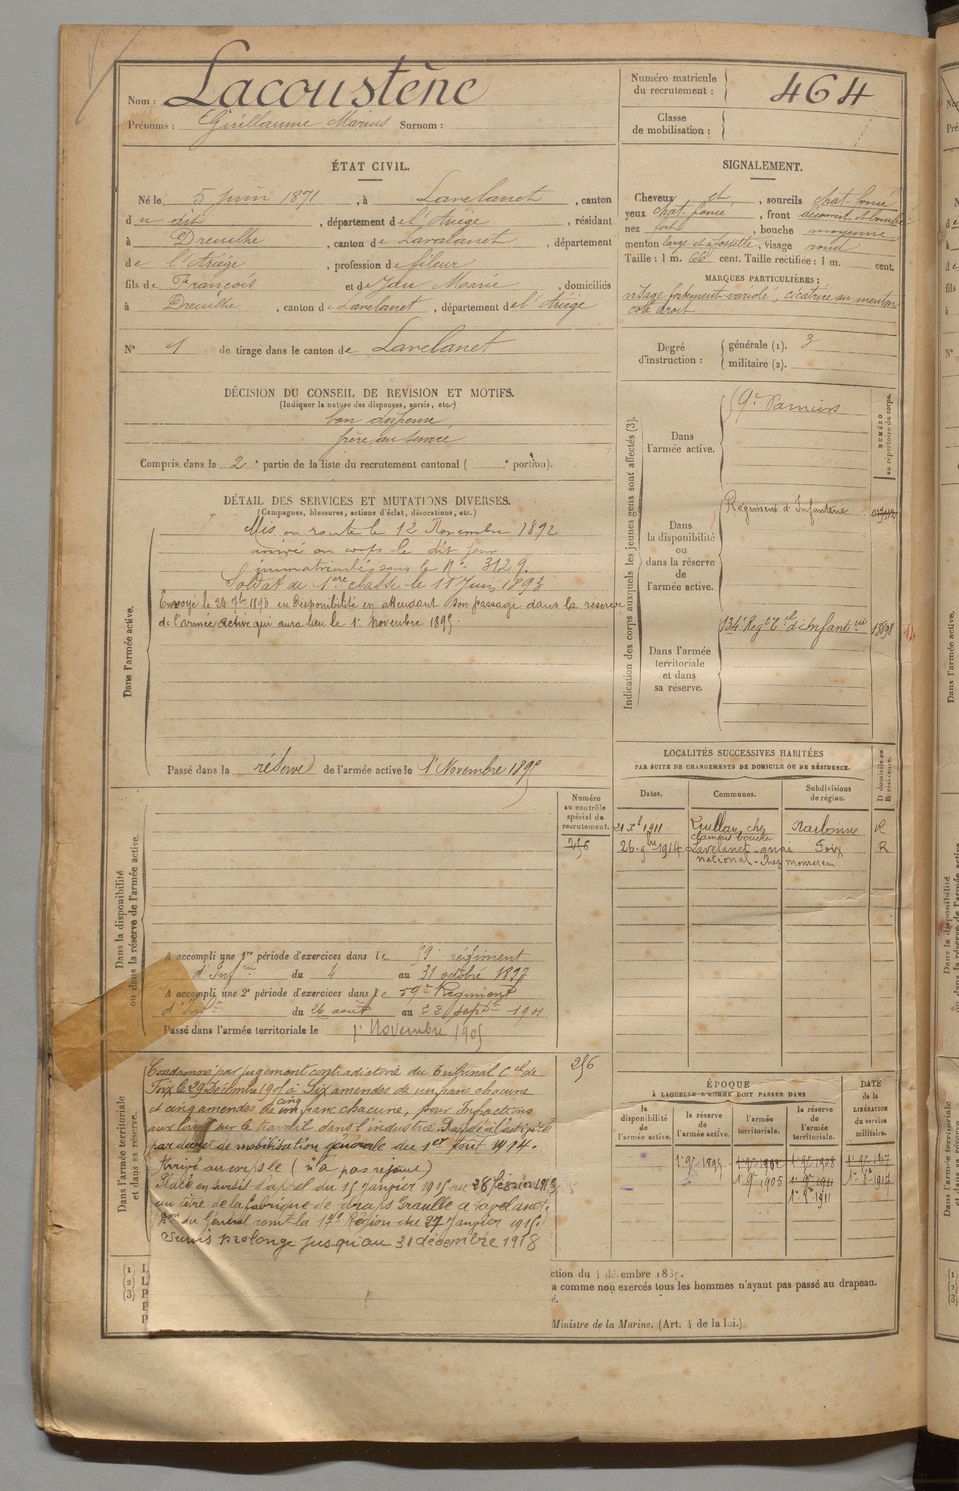 Nom : Lacoustène
Prénoms : Guillaume Marius Surnom :
Numéro matricule du recrutement : 464
Classe de mobilisation :
ÉTAT CIVIL.
Né le 5 Juin 1871, à Lavelanet, canton
du dit, département de l'Ariège, résidant
à Dreuilhe, canton de Lavelanet, département
de l'Ariège, profession de fileur
fils de François et de Marie, domiciliés
à Dreuilhe, canton de Lavelanet, département de l'Ariège
N° 1 de tirage dans le canton de Lavelanet
SIGNALEMENT.
Cheveux et, sourcils chat. foncé
yeux chat. foncé, front découvert
nez fort, bouche moyenne
menton large et à fossette, visage rond
Taille : 1 m. 66 cent. Taille rectifiée : 1 m. cent.
MARQUES PARTICULIÈRES :
visage fortement variolé, cicatrice au menton
coté droit
Degré d'instruction : générale (1). 3
militaire (2).
DÉCISION DU CONSEIL DE REVISION ET MOTIFS.
(Indiquer la nature des dispenses, sursis, etc.)
bon dispensé
frère au service
Compris dans la 2e partie de la liste du recrutement cantonal ( e portion).
DÉTAIL DES SERVICES ET MUTATIONS DIVERSES.
(Campagnes, blessures, actions d'éclat, décorations, etc.)
Dans l'armée active.
Mis en route le 12 Novembre 1892
arrivé au corps le dit jour
immatriculé sous le N° 3129.
Soldat de 1ère classe le 11 Juin 1893
Envoyé le 24 7bre 1893 en disponibilité en attendant son passage dans la réserve
de l'armée active qui aura lieu le 1er Novembre 1895.
Passé dans la réserve de l'armée active le 1er Novembre 1895
Indication des corps auxquels les jeunes gens sont affectés (3).
NUMÉRO au répertoire du corps.
Dans l'armée active.
Pamiers
Dans la disponibilité ou dans la réserve de l'armée active.
Régiment d'Infanterie
Dans l'armée territoriale et dans sa réserve.
134e Regt Tal d'Infanterie
LOCALITÉS SUCCESSIVES HABITÉES
PAR SUITE DE CHANGEMENTS DE DOMICILE OU DE RÉSIDENCE.
Dates. Communes. Subdivisions de région. D domicile ou R résidence.
1911 chez Narbonne R
26 9bre 1914 Lavelanet Foix R
national - chez
Dans la disponibilité ou dans la réserve de l'armée active.
Numéro au contrôle spécial du recrutement.
256
A accompli une 1re période d'exercices dans le 59e régiment
d'Infrie du 4 au 31 octobre 1897
A accompli une 2e période d'exercices dans le 59e Régiment
d'Infie du 26 août au 22 Septbre 1901
Passé dans l'armée territoriale le 1er Novembre 1905
Dans l'armée territoriale et dans sa réserve.
256
Condamné par jugement contradictoire du Tribunal Cel de
Foix le 29 Décembre 1905 à Six amendes de un franc chacune
et cinq amendes de cinq franc chacune, pour Infractions
aux lois sur le travail dans l'industrie. Rappelé à l'activité
par décret de mobilisation générale du 1er Août 1914.
Arrivé au corps le (n'a pas rejoint)
Placé en sursis d'appel du 15 Janvier 1915 au 28 Février 1915
au titre de la fabrique de draps Graulle à Lavelanet.
du Général comt la 17e Région du 27 Janvier 1915.
Sursis prolongé jusqu'au 31 décembre 1918
ÉPOQUE
À LAQUELLE L'HOMME DOIT PASSER DANS
la disponibilité de l'armée active. la réserve de l'armée active. l'armée territoriale. la réserve de l'armée territoriale. DATE de la LIBÉRATION du service militaire.
1er 9bre 1895 1er 9bre 1902 1er 9bre 1908 1er 9bre 1917
1er 9bre 1905 1er 9bre 1911 1er 8bre 1917
1er 8bre 1911
(1) L
(2) L
(3) P
P
P
ction du 4 décembre 1889.
a comme non exercés tous les hommes n'ayant pas passé au drapeau.
é.
Ministre de la Marine. (Art. 4 de la loi.)